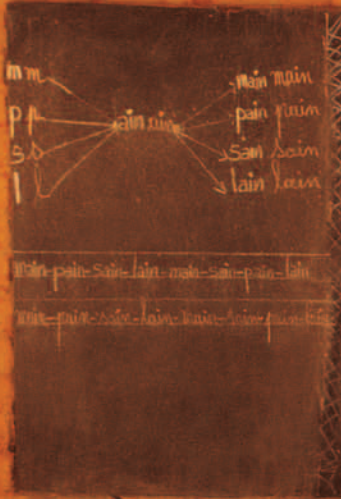 m m main main
p p ain ain pain pain
s s sain sain
l l lain lain
main-pain-sain-lain-main-sain-pain-lain
main-pain-sain-lain-main-sain-pain-lain